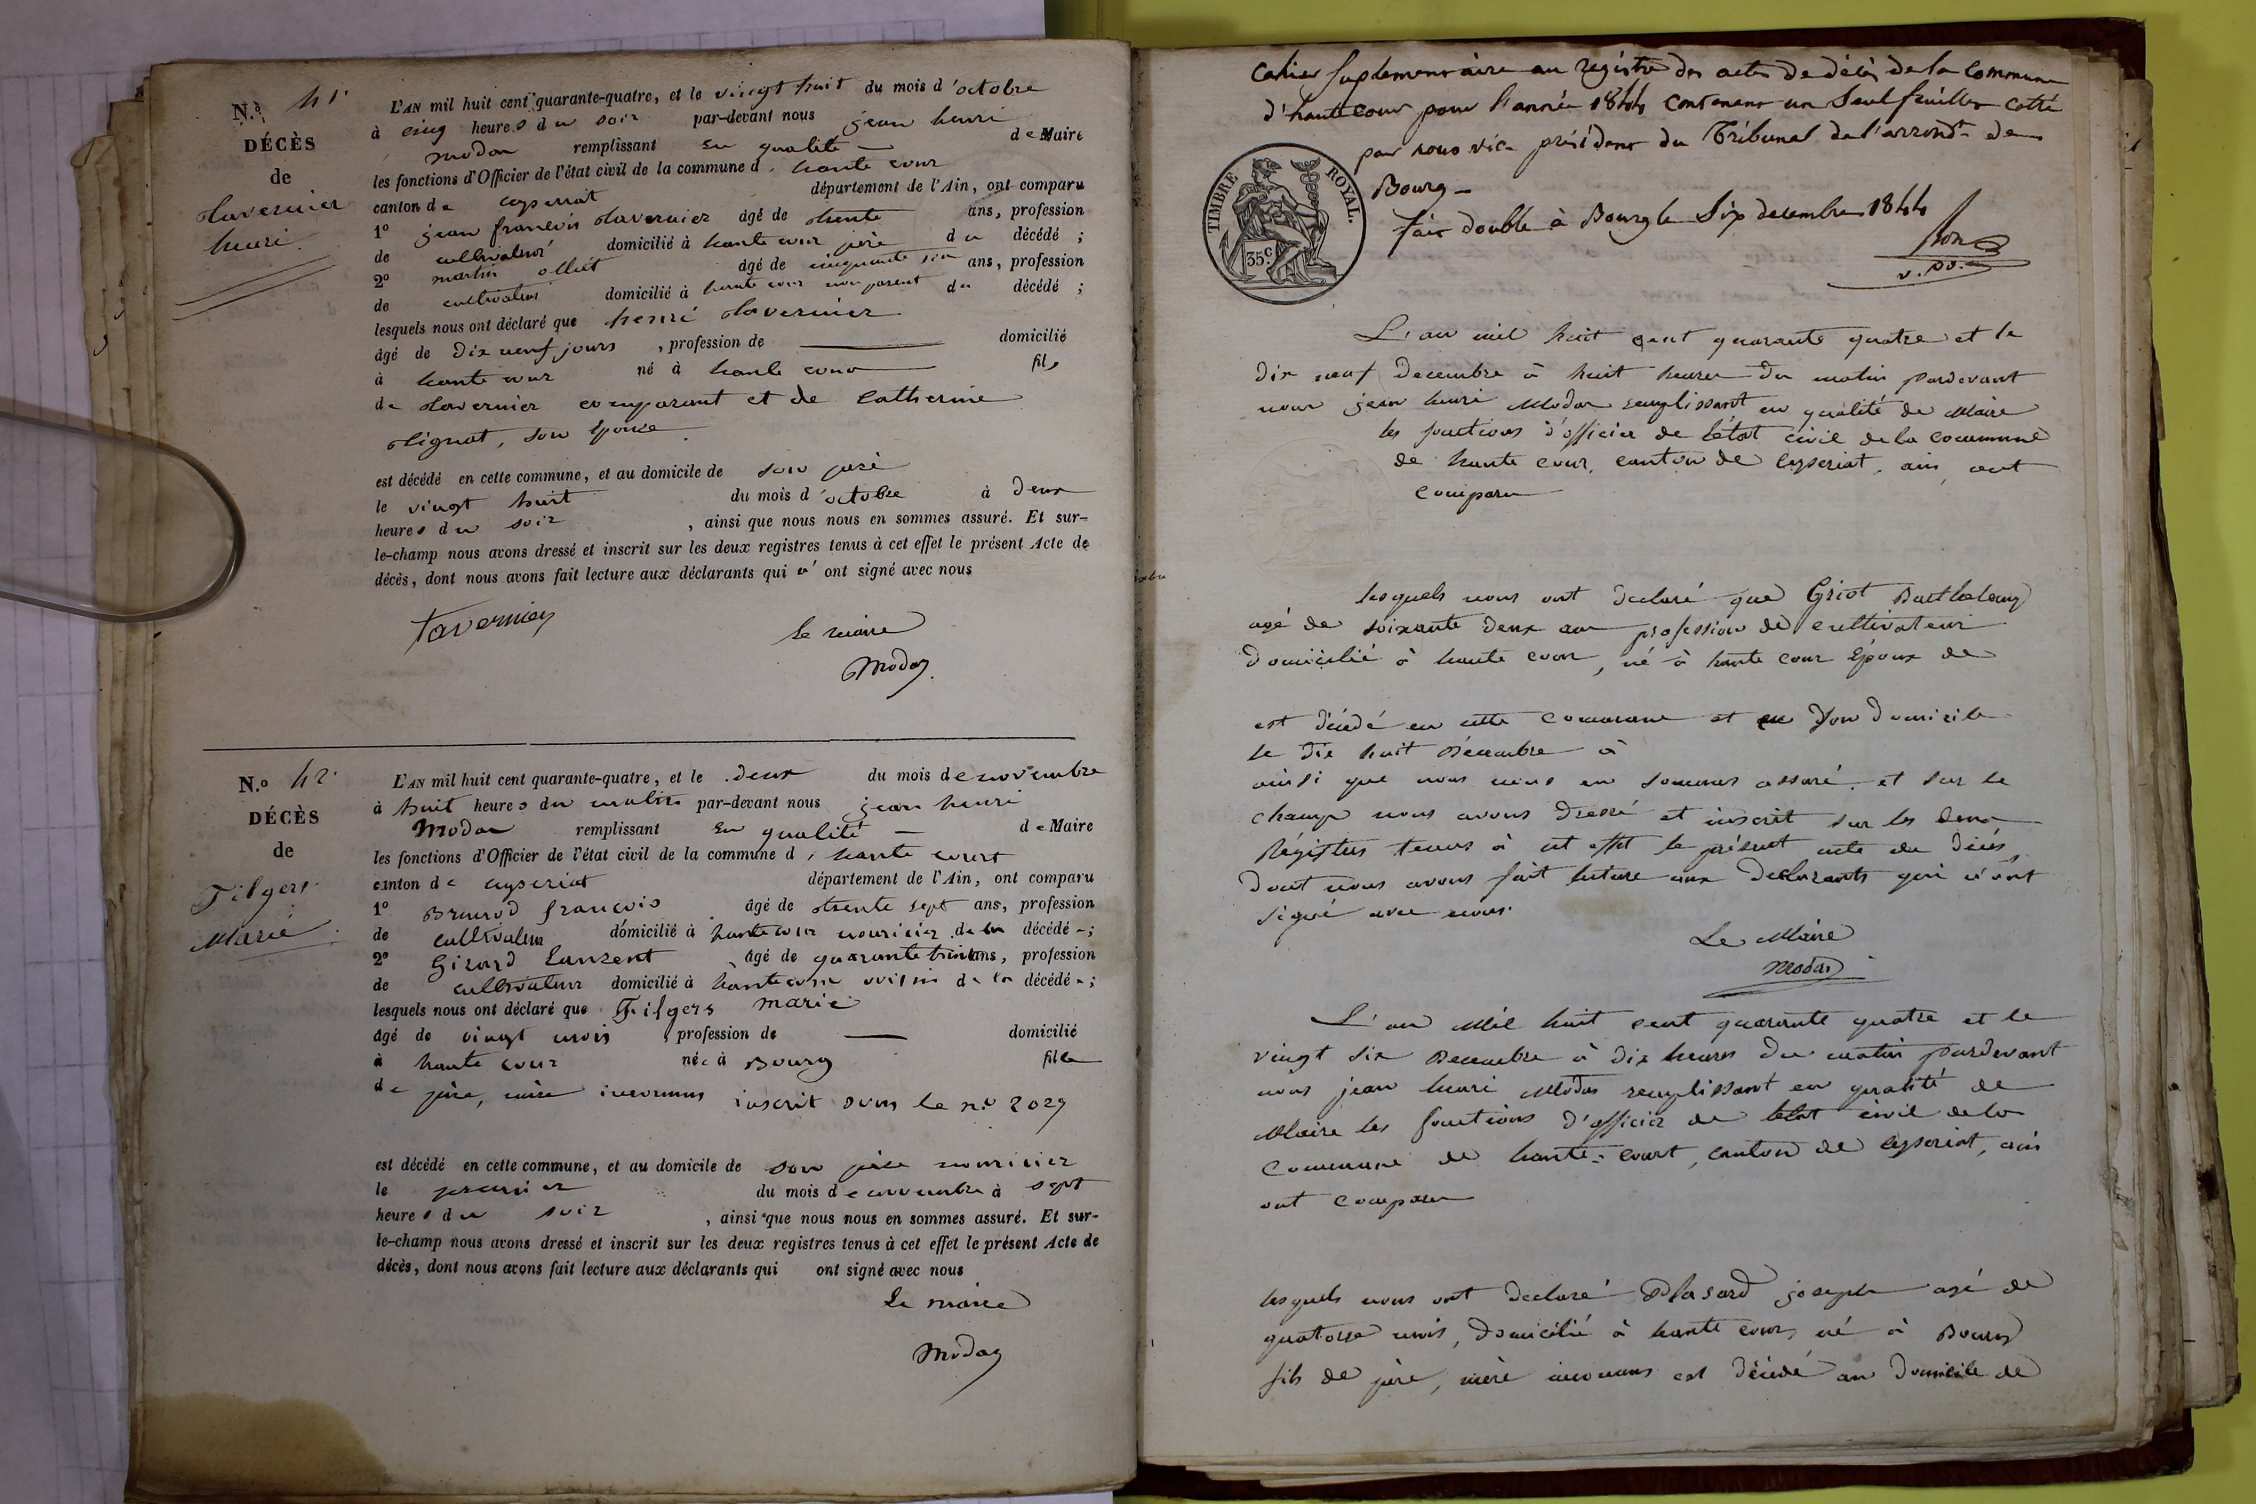 N.o 41.
DÉCÈS
de
tavernier
henri.
L'AN mil huit cent quarante-quatre, et le vingt huit du mois d'octobre
à cinq heures du soir par-devant nous jean henri
modas remplissant en qualité de Maire
les fonctions d'Officier de l'état civil de la commune d'haute cour
canton de ceyseriat département de l'Ain, ont comparu
1º jean françois tavernier âgé de trente ans, profession
de cultivateur domicilié à haute cour père du décédé ;
2º martin olliet âgé de cinquante six ans, profession
de cultivateur domicilié à haute cour non parent du décédé ;
lesquels nous ont déclaré que henri tavernier
âgé de dix neuf jours , profession de domicilié
à haute cour né à haute cour fils
de tavernier comparant et de Catherine
tignat, son épouse.
est décédé en cette commune, et au domicile de son père
le vingt huit du mois d'octobre à deux
heures du soir , ainsi que nous nous en sommes assuré. Et sur-
le-champ nous avons dressé et inscrit sur les deux registres tenus à cet effet le présent Acte de
décès, dont nous avons fait lecture aux déclarants qui n' ont signé avec nous
tavernier
le maire
Modas
N.o 42.
DÉCÈS
de
Filgers
Marie.
L'AN mil huit cent quarante-quatre, et le deux du mois de novembre
à huit heures du matin par-devant nous jean henri
Modas remplissant en qualité de Maire
les fonctions d'Officier de l'état civil de la commune d'haute court
canton de ceyseriat département de l'Ain, ont comparu
1º Brunod françois âgé de trente sept ans, profession
de cultivateur domicilié à haute cour nouricier de la décédée ;
2º Girard Laurent âgé de quarante trois ans, profession
de cultivateur domicilié à haute cour voisin de la décédée ;
lesquels nous ont déclaré que Filgers marie
âgé de vingt mois , profession de domicilié
à haute cour née à Bourg fille
de père, mère inconnus inscrit sous le n.o 2029
est décédé en cette commune, et au domicile de son père nouricier
le premier du mois de novembre à sept
heures du soir , ainsi que nous nous en sommes assuré. Et sur-
le-champ nous avons dressé et inscrit sur les deux registres tenus à cet effet le présent Acte de
décès, dont nous avons fait lecture aux déclarants qui ont signé avec nous
le maire
Modas
Cahier suplementaire au registre des actes de décès de la Commune
d'hautecour pour l'année 1844 contenant un seul feuillet cotté
par nous vice président du Tribunal de l'arrondt de
Bourg
TIMBRE ROYAL.
35 c
fait double à Bourg le Six decembre 1844
v. p.
L'an mil huit cent quarante quatre et le
dix neuf decembre à huit heures du matin pardevant
nous jean henri Modas remplissant en qualité de Maire
les fonctions d'officier de l'état civil de la commune
de haute cour, canton de ceyseriat, ain, ont
comparu
lesquels nous ont declaré que Griot Barthelemy
agé de soixante deux ans profession de cultivateur
domicilié à haute cour, né à haute cour époux de
est décédé en cette commune et en son domicile
le dix huit Décembre à
ainsi que nous nous en sommes assuré. et sur le
champ nous avons dressé et inscrit sur les deux
Régistres tenus à cet effet le présent acte de décès
dont nous avons fait lecture aux déclarants qui n'ont
signé avec nous.
Le Maire
Modas
L'an Mil huit cent quarante quatre et le
vingt six Decembre à dix heures du matin pardevant
nous jean henri Modas remplissant en qualité de
Maire les fonctions d'officier de l'état civil de la
commune de haute-court, canton de ceyseriat, ain
ont comparu
lesquels nous ont declaré Plasard joseph agé de
quatorze mois, domicilié à haute cour, né à Bourg
fils de père, mère inconnus est décédé au domicile de